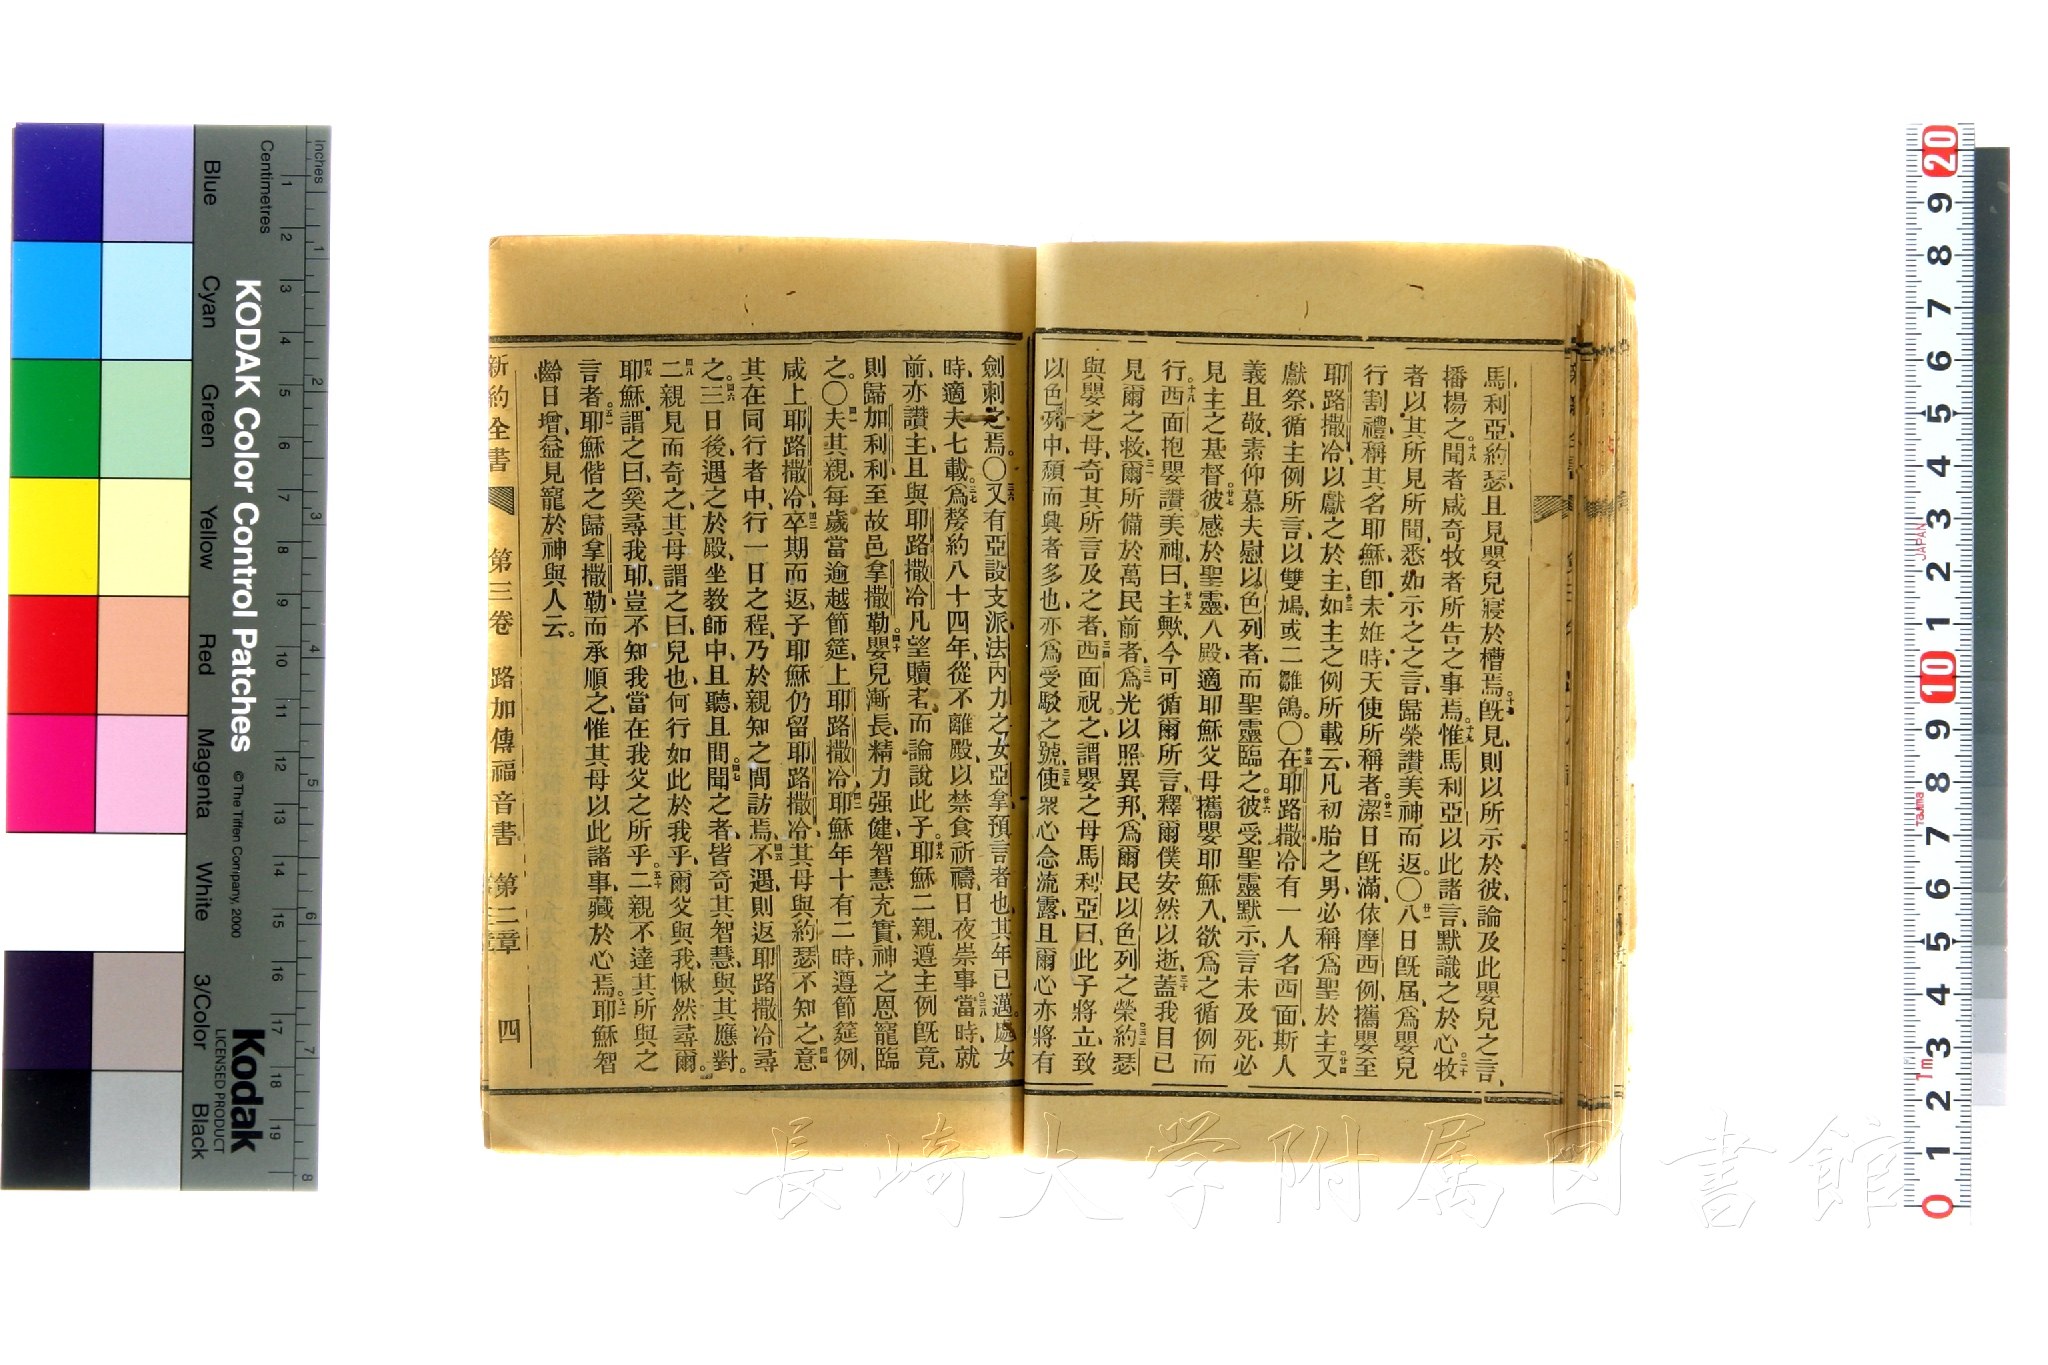 馬利亞、約瑟、且見嬰兒寢於槽焉。十七既見、則以所示於彼、論及此嬰兒之言、
播揚之。十八聞者咸奇牧者所告之事焉。十九惟馬利亞以此諸言、默識之於心。二十牧
者以其所見所聞、悉如示之之言、歸榮讚美神而返。〇廿一八日既屆、為嬰兒
行割禮、稱其名耶穌、卽未姙時、天使所稱者。廿二潔日既滿、依摩西例、攜嬰至
耶路撒冷、以獻之於主、廿三如主之例所載云、凡初胎之男、必稱為聖於主、廿四又
獻祭、循主例所言、以雙鳩、或二雛鴿。〇廿五在耶路撒冷有一人名西面、斯人
義且敬、素仰慕夫慰以色列者、而聖靈臨之。廿六彼受聖靈默示、言未及死、必
見主之基督。廿七彼感於聖靈、入殿、適耶穌父母攜嬰耶穌入、欲為之循例而
行。廿八西面抱嬰讚美神、曰、廿九主歟、今可循爾所言、釋爾僕安然以逝、三十蓋我目已
見爾之救、三一爾所備於萬民前者、三二為光以照異邦、為爾民以色列之榮。三三約瑟
與嬰之母、奇其所言及之者。三四西面祝之、謂嬰之母馬利亞曰、此子將立、致
以色列中、頹而興者多也、亦為受駁之號、三五使衆心念流露、且爾心亦將有
劍刺之焉。〇三六又有亞設支派、法內力之女亞拿、預言者也、其年已邁。處女
時、適夫七載。三七為嫠約八十四年、從不離殿、以禁食祈禱、日夜崇事。三八當時、就
前、亦讚主、且與耶路撒冷凡望贖者、而論說此子。三九耶穌二親、遵主例既竟、
則歸加利利、至故邑拿撒勒。四十嬰兒漸長、精力强健、智慧充實、神之恩寵臨
之。〇四一夫其親、每歲當逾越節筵、上耶路撒冷。四二耶穌年十有二時、遵節筵例、
咸上耶路撒冷、四三卒期而返、子耶穌仍留耶路撒冷、其母與約瑟不知之、四四意
其在同行者中、行一日之程、乃於親知之間訪焉、四五不遇、則返耶路撒冷尋
之。四六三日後、遇之於殿、坐教師中、且聽且問、四七聞之者、皆奇其智慧與其應對。
四八二親見而奇之、其母謂之曰、兒也、何行如此於我乎、爾父與我愀然尋爾。
四九耶穌謂之曰、奚尋我耶、豈不知我當在我父之所乎。五十二親不達其所與之
言者。五一耶穌偕之歸拿撒勒、而承順之、惟其母以此諸事、藏於心焉。五二耶穌智
齡日增、益見寵於神與人云。
新約全書 第三卷 路加傳福音書 第二章 四
KODAK Color Control Patches
© The Tiffen Company, 2000
Kodak
LICENSED PRODUCT
Inches
Centimetres
Blue Cyan Green Yellow Red Magenta White 3/Color Black
1 2 3 4 5 6 7 8 9 10 11 12 13 14 15 16 17 18 19
1 2 3 4 5 6 7 8
20 9 8 7 6 5 4 3 2 1 10 9 8 7 6 5 4 3 2 1 0
JAPAN
Tajima
1m
長崎大学附属図書館